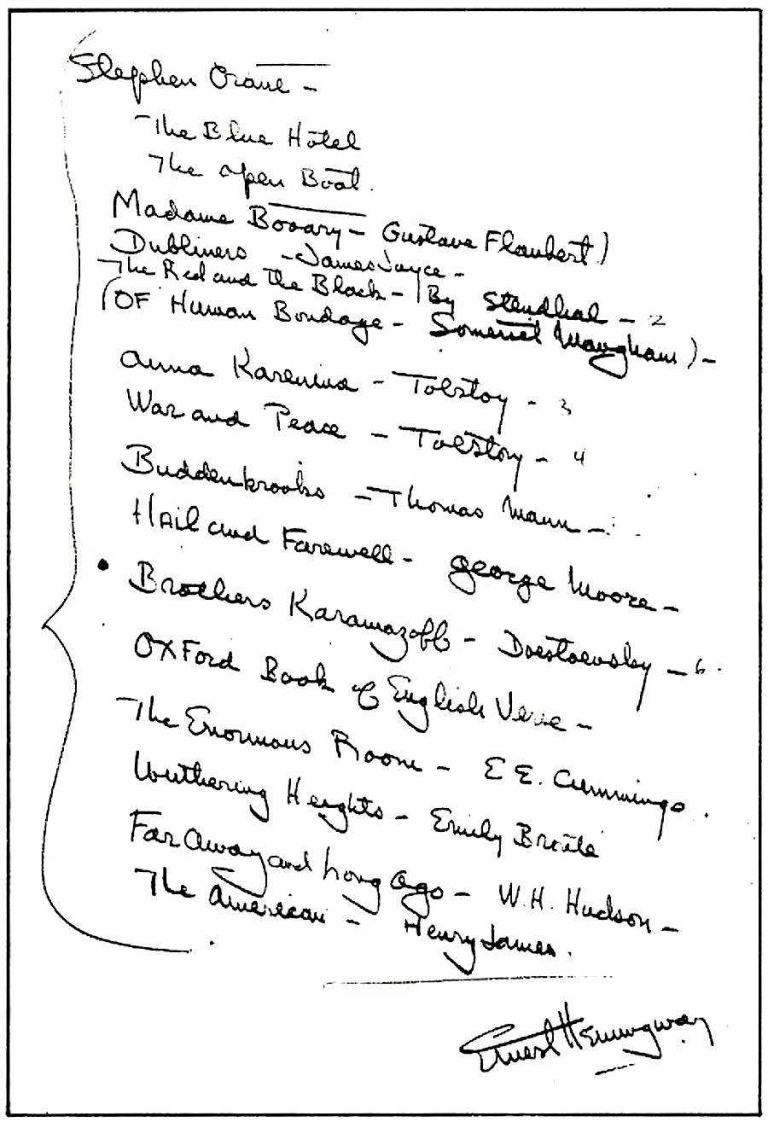 Stephen Crane -
The Blue Hotel
The open Boat.
Madame Bovary - Gustave Flaubert)
Dubliners - James Joyce -
The Red and the Black - By Stendhal - 2
(OF Human Bondage - Somerset Maugham) -
Anna Karenina - Tolstoy - 3
War and Peace - Tolstoy - 4
Buddenbrooks - Thomas Mann -
Hail and Farewell - George Moore -
Brothers Karamazoff - Doestoevsky - 6.
OXFord Book of English Verse -
The Enormous Room - E E. Cummings.
Wuthering Heights - Emily Bronte
Far Away and Long Ago - W.H. Hudson -
The American - Henry James.
Ernest Hemingway